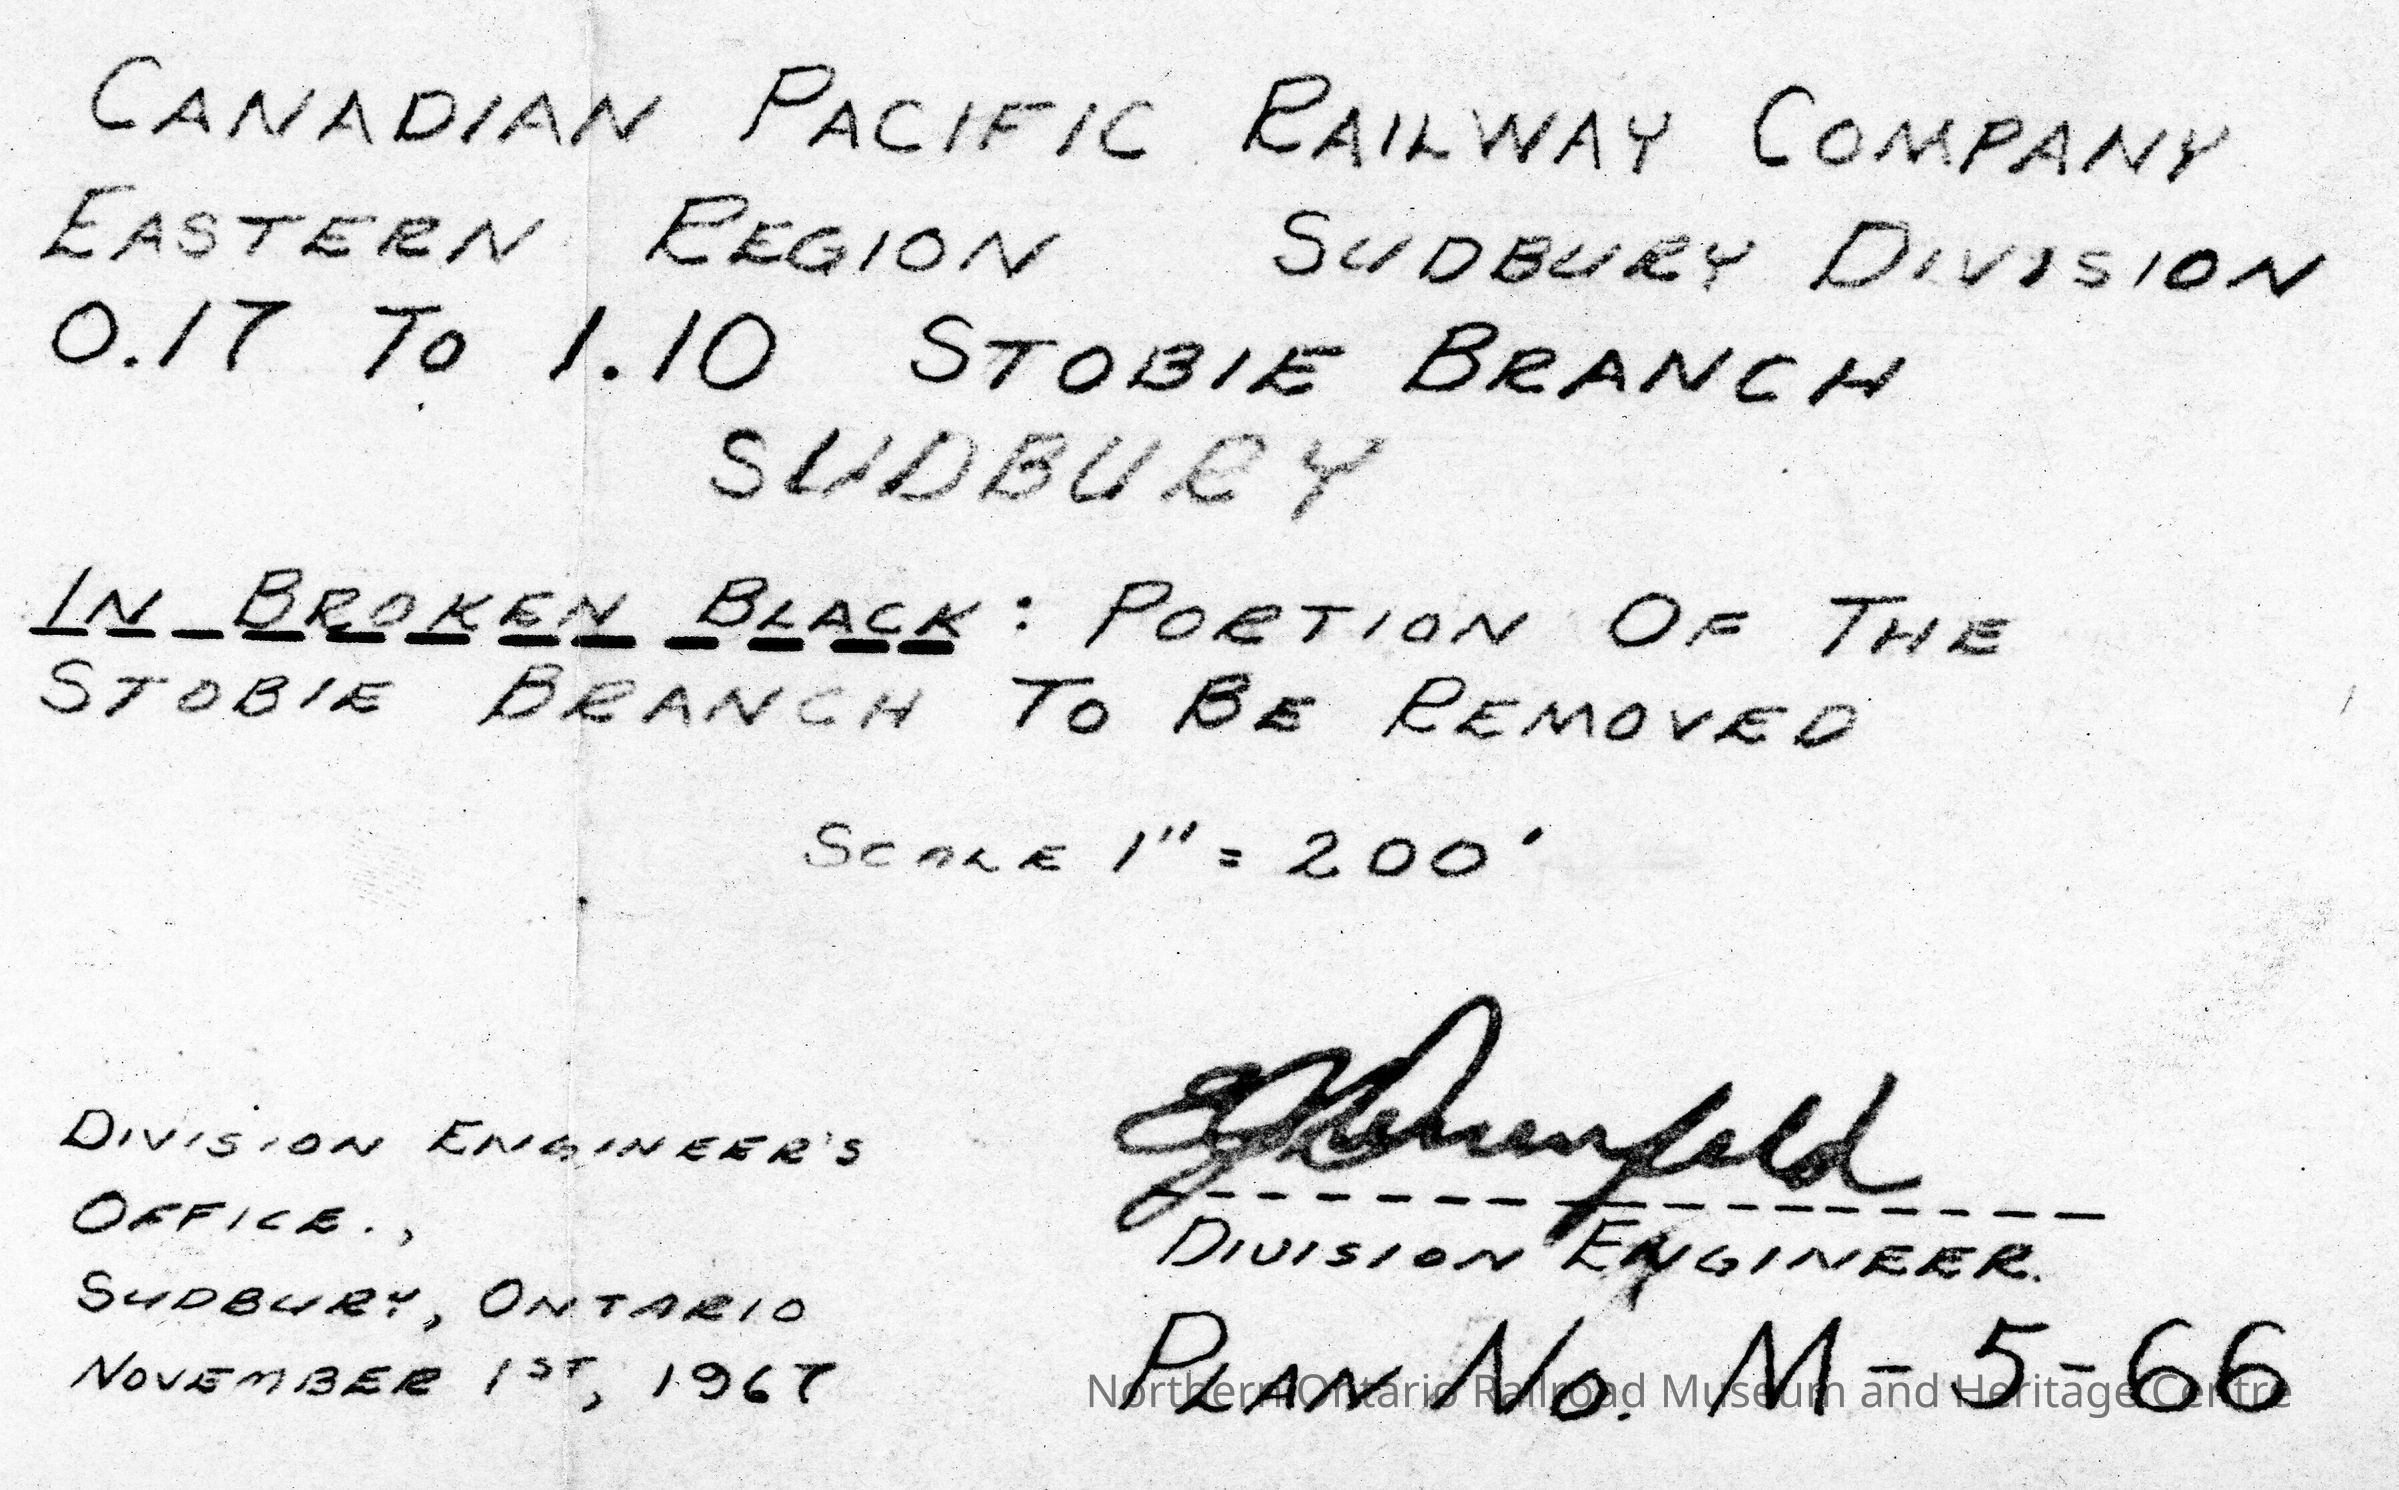 CANADIAN PACIFIC RAILWAY COMPANY
EASTERN REGION SUDBURY DIVISION
0.17 TO 1.10 STOBIE BRANCH
SUDBURY
IN BROKEN BLACK: PORTION OF THE
STOBIE BRANCH TO BE REMOVED
SCALE 1" = 200'
DIVISION ENGINEER'S
OFFICE.,
SUDBURY, ONTARIO
NOVEMBER 1ST, 1967
DIVISION ENGINEER.
PLAN NO. M-5-66
Northern Ontario Railroad Museum and Heritage Centre